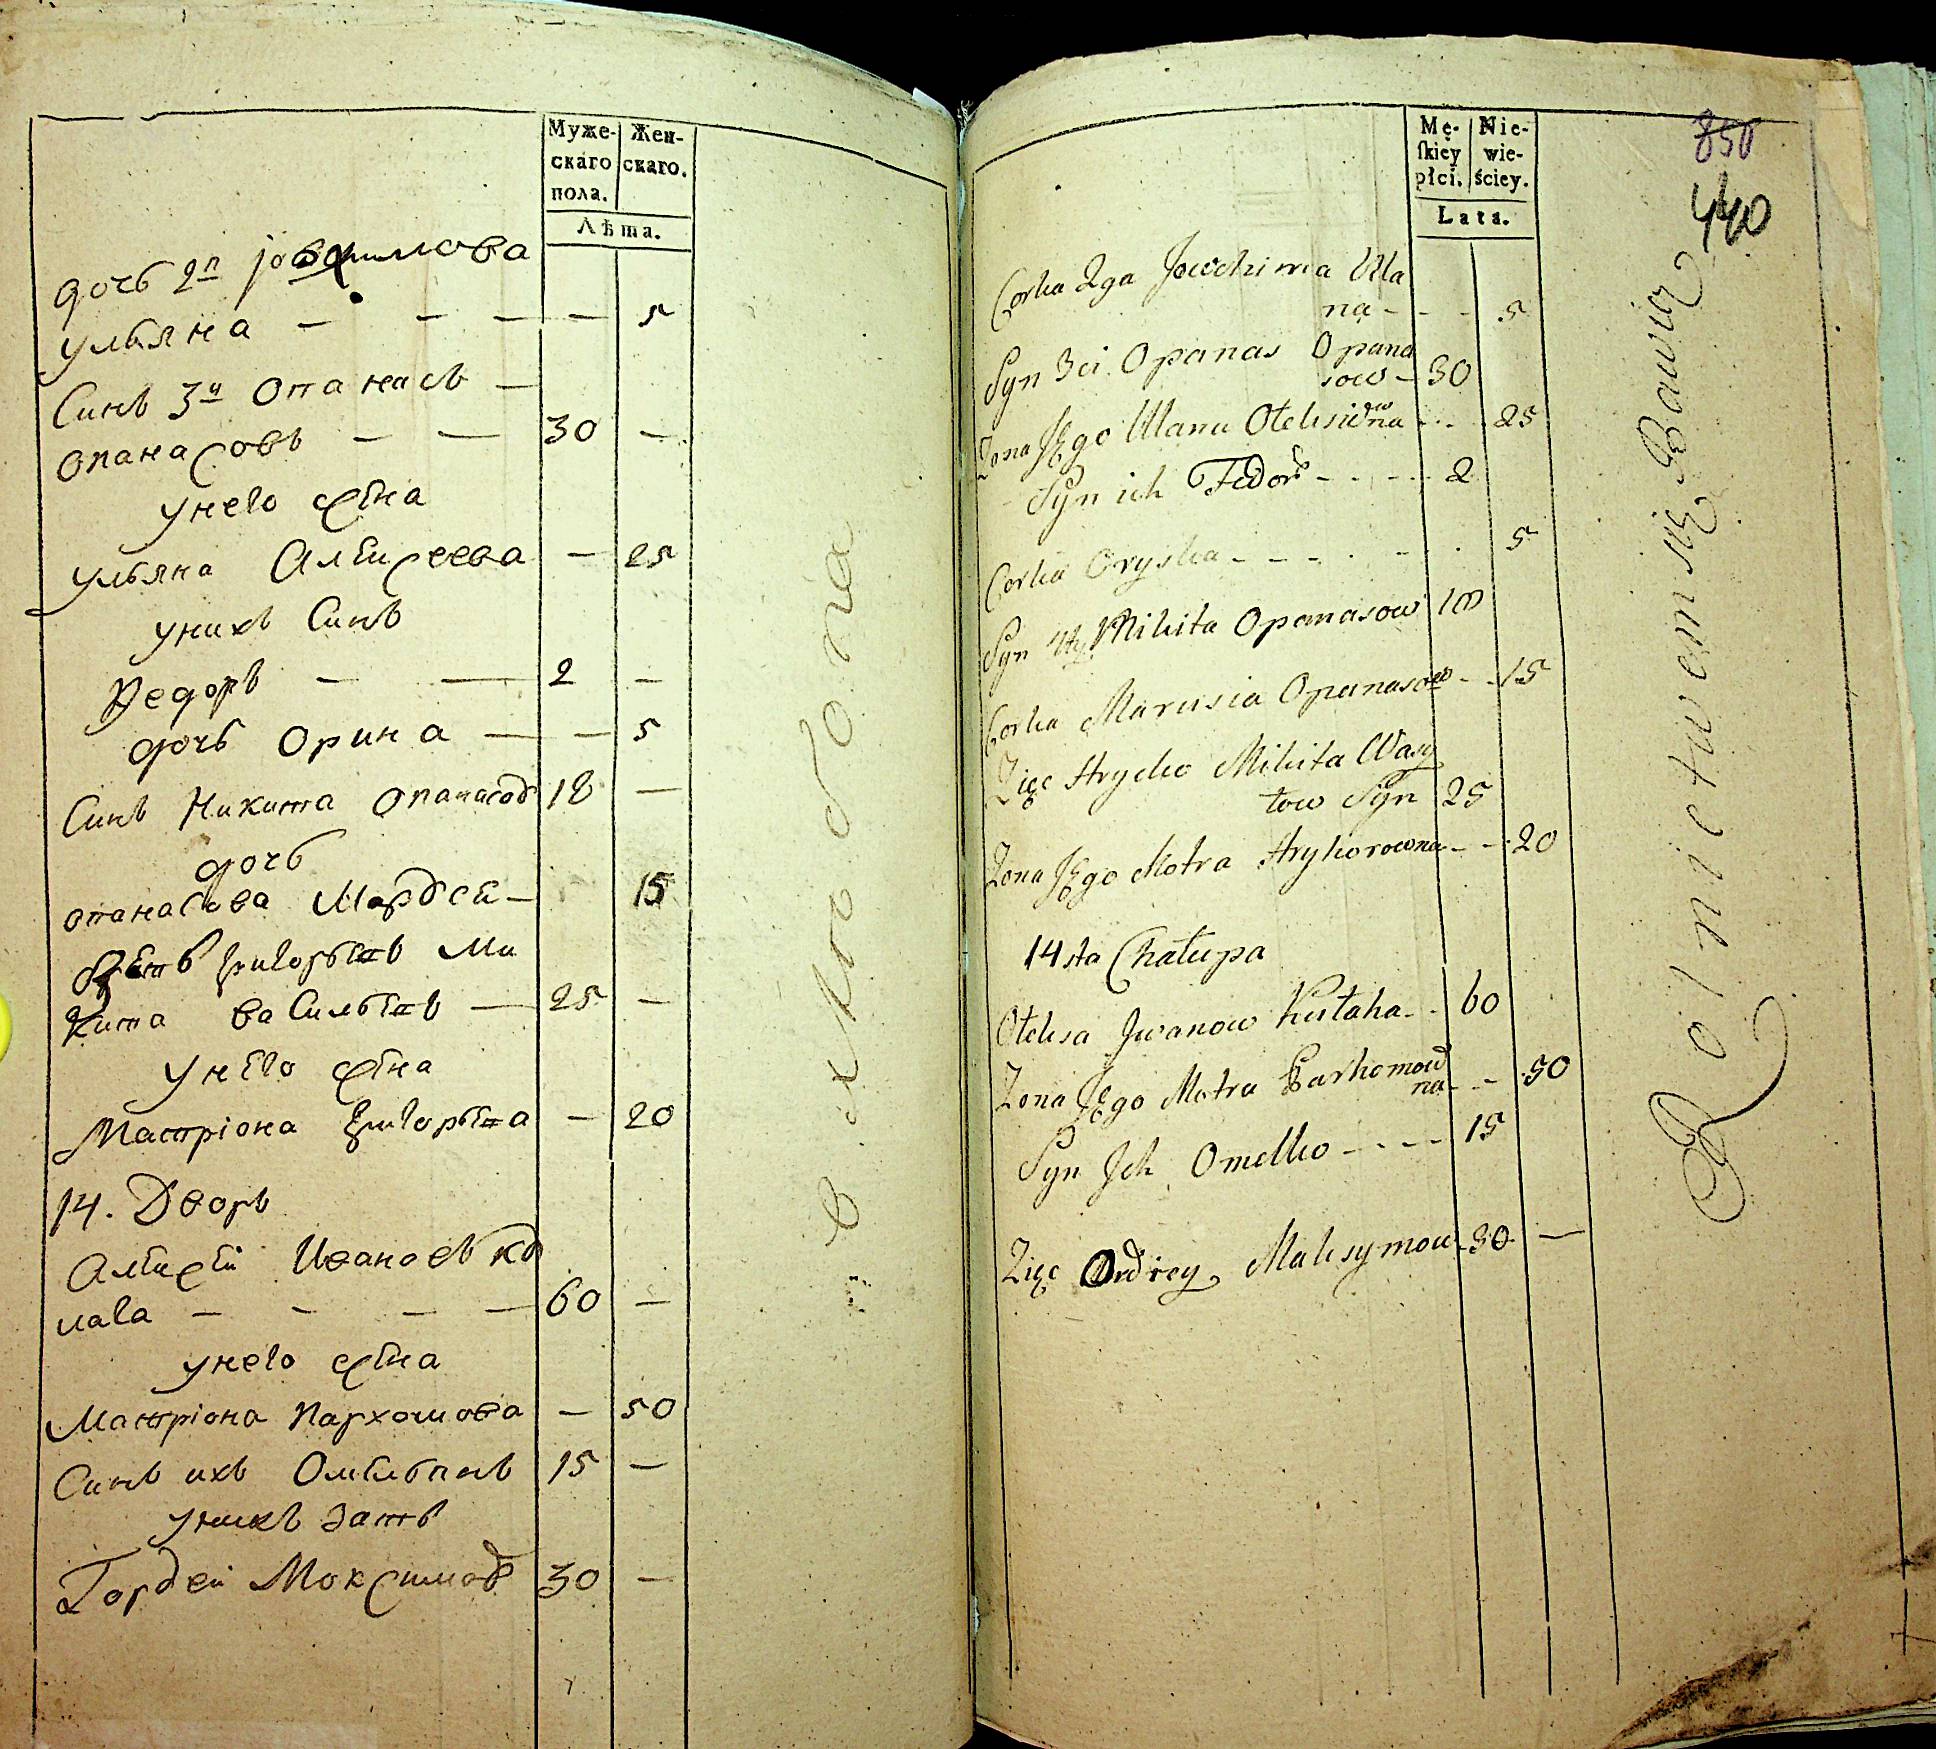 Муже-
скаго
пола.
Жен-
скаго.
Лѣта.
дочь 2я
ульяна — — — — 5
Синъ 3й Опанасъ —
опанасовъ — — 30 —
унего жена
ульяна Алексеева — 25
унихъ Синъ
Федоръ — — 2 —
дочь Орина — — 5
Синъ Никита опанасов 18 —
дочь
опанасова — 15
зеть григорьевъ Ми
кита васильевъ — 25 —
унего жена
Матріона григорьева — 20
14. Дворъ
Алексей Ивановъ
— — — — 60 —
унего жена
Матріона Пархомова — 50
Синъ ихъ Омельянъ 15 —
унихъ зать
Гордей Максимов 30 —
850
440
Mę-
ſkiey
płci.
Nie-
wie-
ściey.
Lata.
Corka 2ga Jowchima Ula
na - - - 5
Syn 3ci Opanas Opana
sow - 30
Zona Jego Ulana Oleksiowna - - - 25
Syn ich Fedor - - - - 2
Corka Oryska - - - - - - 5
Syn 4ty Mikita Opanasow 18
Corka Marusia Opanasow - - 15
Zięc Hrycko Mikita Wasy
low Syn 25
Zona Jego Motra Hryhorowna - - 20
14sta Chałupa
Oleksa Jwanow - - 60
Zona Jego Motra Parhomow
na - - 50
Syn Jch Omelko - - - - 15
Zięc Ondrey Maksymow - 30 —
Rolnictwem się Bawią